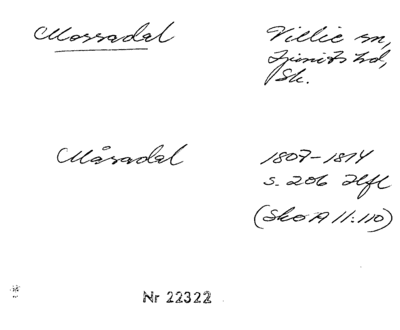 Mossadal
Villie sn,
Ljunits hd,
Sk.
Måsadal
1807-1814
s. 206 Hfl
(SkoA 11:110)
Nr 22322